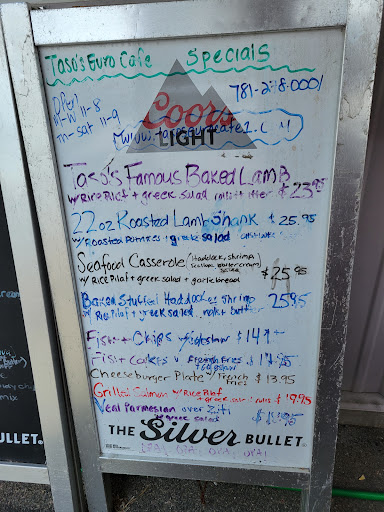 Taso's Euro Cafe Specials
781-218-0001
Open
M-W 11-8
Th-Sat 11-9
Coors
LIGHT
Taso's Famous Baked Lamb
w/ Rice Pilaf + greek salad $23.95
22oz Roasted Lamb Shank $25.95
w/ Roasted Potatoes + greek salad
Seafood Casserole (Haddock, shrimp
w/ Rice Pilaf + greek salad + garlic bread $25.95
Baked Stuffed Haddock w/ Shrimp 25.95
w/ Rice Pilaf + greek salad
Fish + Chips
Fish Cakes w French Fries
Cheeseburger Plate w/ French Fries $13.95
Grilled Salmon w/ Rice Pilaf
+ greek salad $19.95
Veal Parmesian over Ziti
greek salad
THE Silver BULLET
ULLET